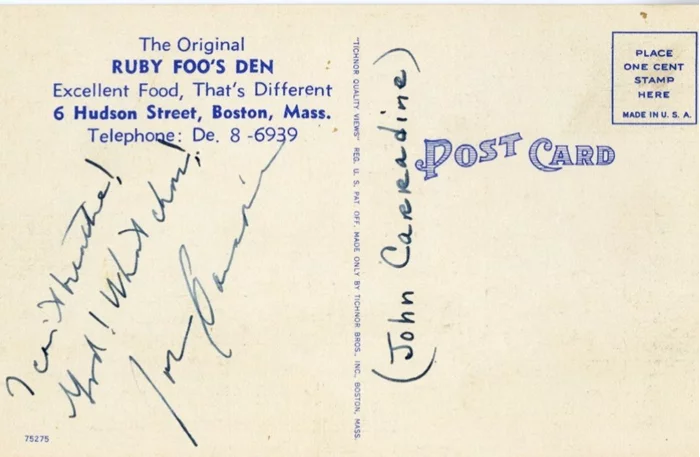 The Original
RUBY FOO'S DEN
Excellent Food, That's Different
6 Hudson Street, Boston, Mass.
Telephone: De. 8 -6939
I can't breathe!
God! What chow!
John Carradine
75275
"TICHNOR QUALITY VIEWS" REG. U. S. PAT. OFF. MADE ONLY BY TICHNOR BROS., INC., BOSTON, MASS.
(John Carradine)
POST CARD
PLACE
ONE CENT
STAMP
HERE
MADE IN U. S. A.